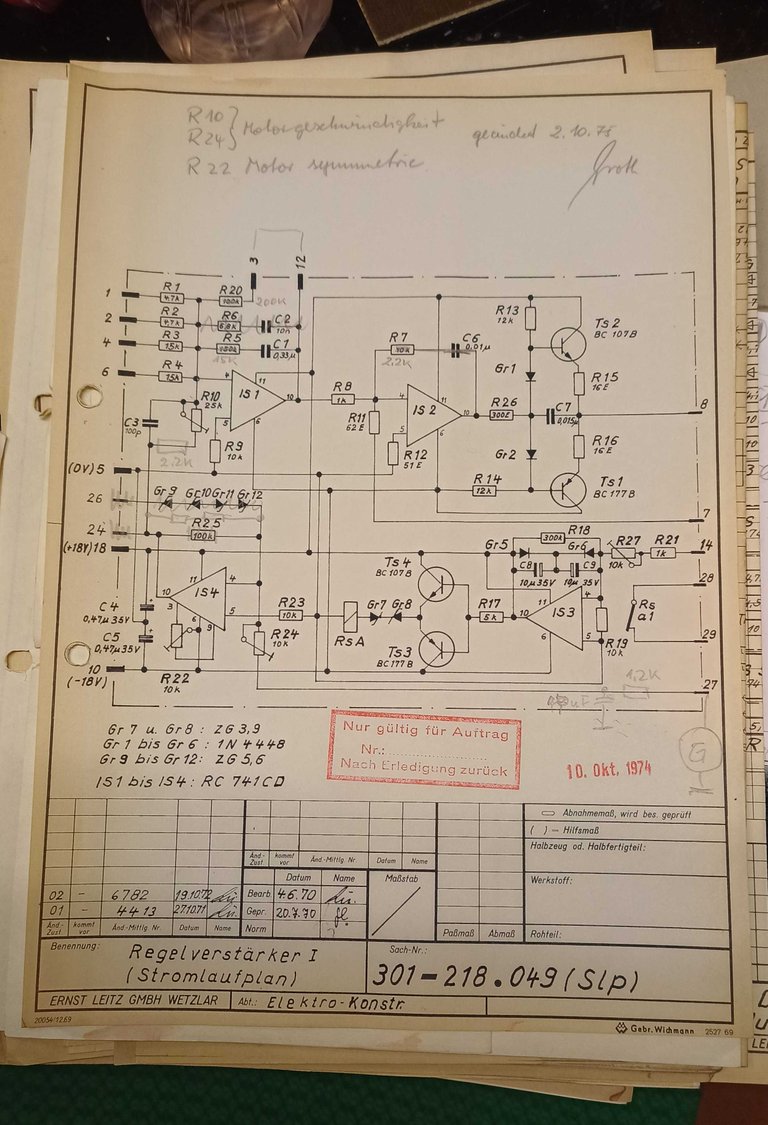 R10
R24 } Motorgeschwindigkeit
geändert 2.10.75
R22 Motor symmetrie
3
12
1
R1
4,7k
R20
100k
200K
2
R2
4,7k
R6
6,8k
C2
10n
4
R3
15k
R5
C1
0,33µ
15K
6
R4
15k
R10
25k
C3
100p
2.2K
R9
10k
4
11
IS1
10
5
6
R8
1k
R7
10k
2.2K
C6
0,01µ
R11
62E
R12
51E
4
11
IS2
10
5
6
R13
12k
Ts2
BC 107B
Gr1
R15
16E
R26
300E
C7
0,015µ
8
Gr2
R16
16E
R14
12k
Ts1
BC 177B
7
(0V) 5
26
Gr9 Gr10 Gr11 Gr12
24
R25
100k
(+18V) 18
C4
0,47µ35V
C5
0,47µ35V
10
(-18V)
10
IS4
4
5
3
6
9
R22
10k
R24
10k
R23
10k
RsA
Gr7 Gr8
Ts4
BC 107B
Ts3
BC 177B
R17
5k
Gr5
R18
300k
Gr6
C8
10µ35V
C9
10µ35V
R27
10k
R21
1k
14
28
11
IS3
4
10
5
6
R19
10k
Rs
a1
29
27
1.2K
G
Gr 7 u. Gr 8 : ZG 3,9
Gr 1 bis Gr 6 : 1N 4448
Gr 9 bis Gr 12: ZG 5,6
IS1 bis IS4 : RC 741CD
Nur gültig für Auftrag
Nr.:
Nach Erledigung zurück
10. Okt. 1974
Abnahmemaß, wird bes. geprüft
( ) – Hilfsmaß
Halbzeug od. Halbfertigteil:
Werkstoff:
Rohteil:
Paßmaß Abmaß
Änd.-Zust. kommt vor Änd.-Mittlg. Nr. Datum Name
Datum Name Maßstab
02 – 6782 19.10.72
Bearb 4.6.70
01 – 4413 27.10.71
Gepr. 20.7.70
Norm
Änd.-Zust. kommt vor Änd.-Mittlg. Nr. Datum Name
Benennung:
Regelverstärker I
(Stromlaufplan)
Sach-Nr.:
301-218.049 (Slp)
ERNST LEITZ GMBH WETZLAR
Abt.: Elektro-Konstr.
20054/12.69
Gebr. Wichmann 2527 69